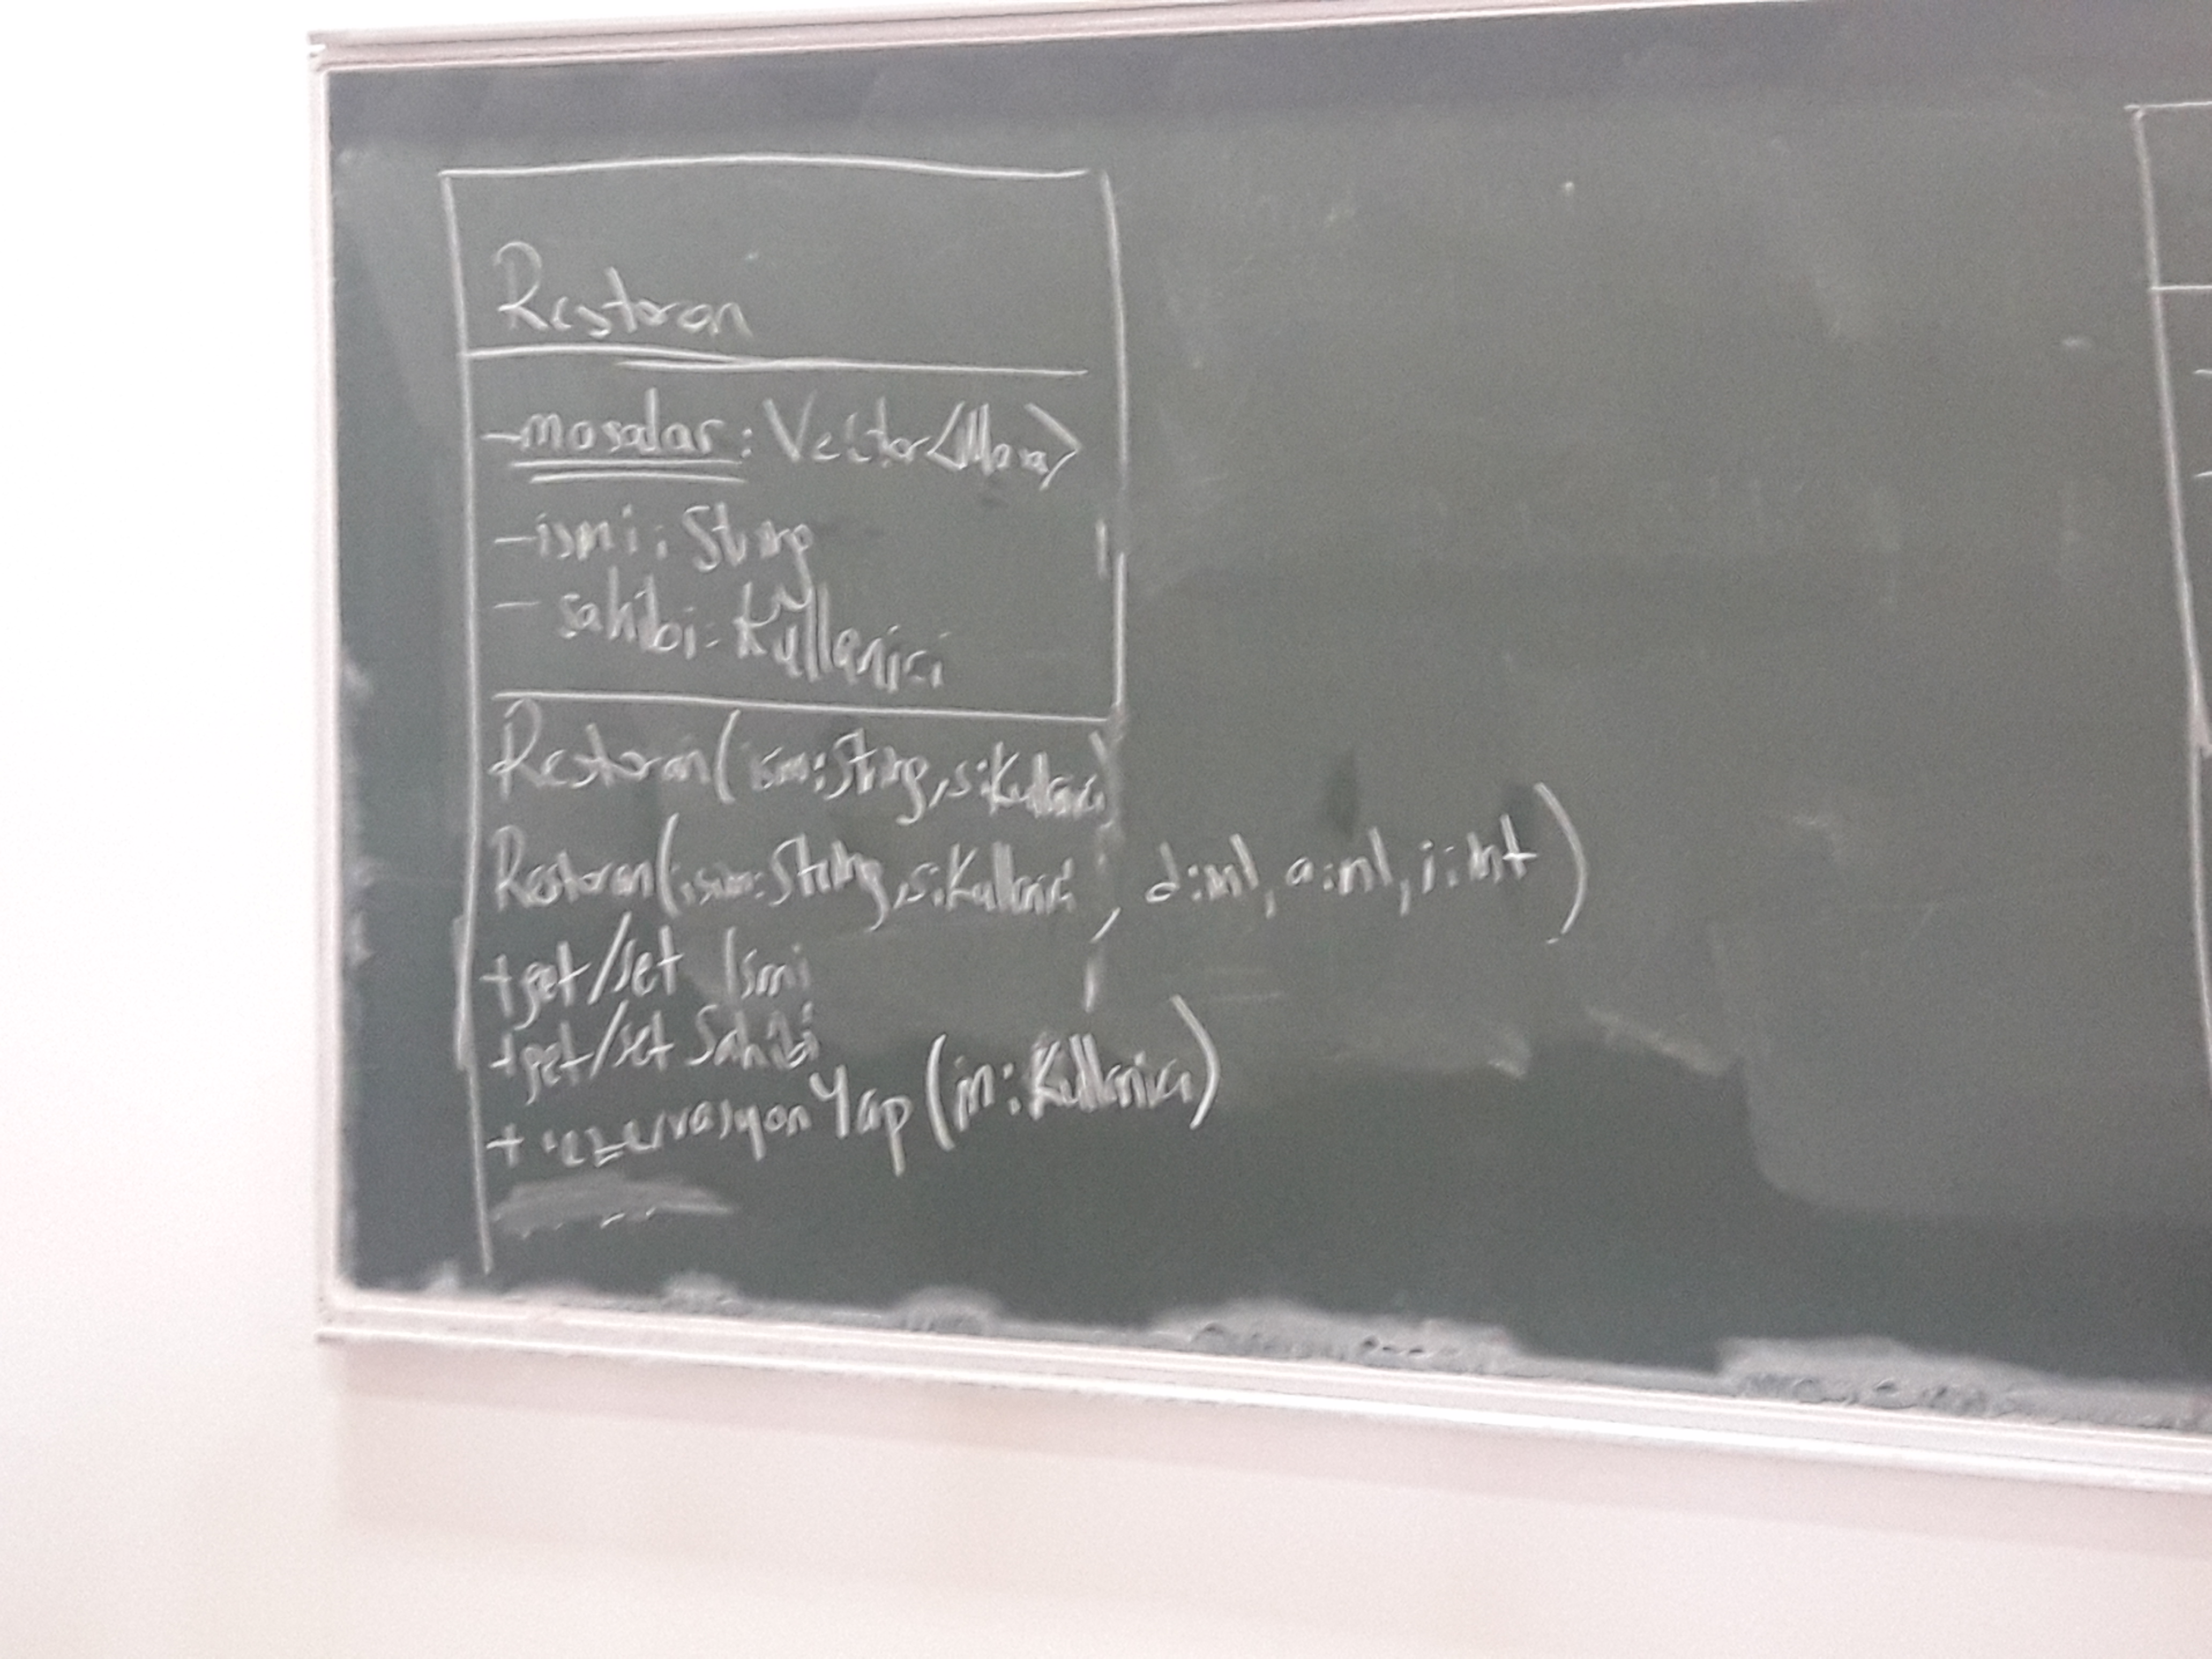 Restoran
-masalar: Vector<Masa>
-ismi: String
- sahibi: Kullanici
Restoran(isim:String,s:Kullanici)
Restoran(isim:String,s:Kullanici, d:int, a:int, i:int)
+get/set Ismi
+get/set Sahibi
+rezervasyonYap(m:Kullanici)